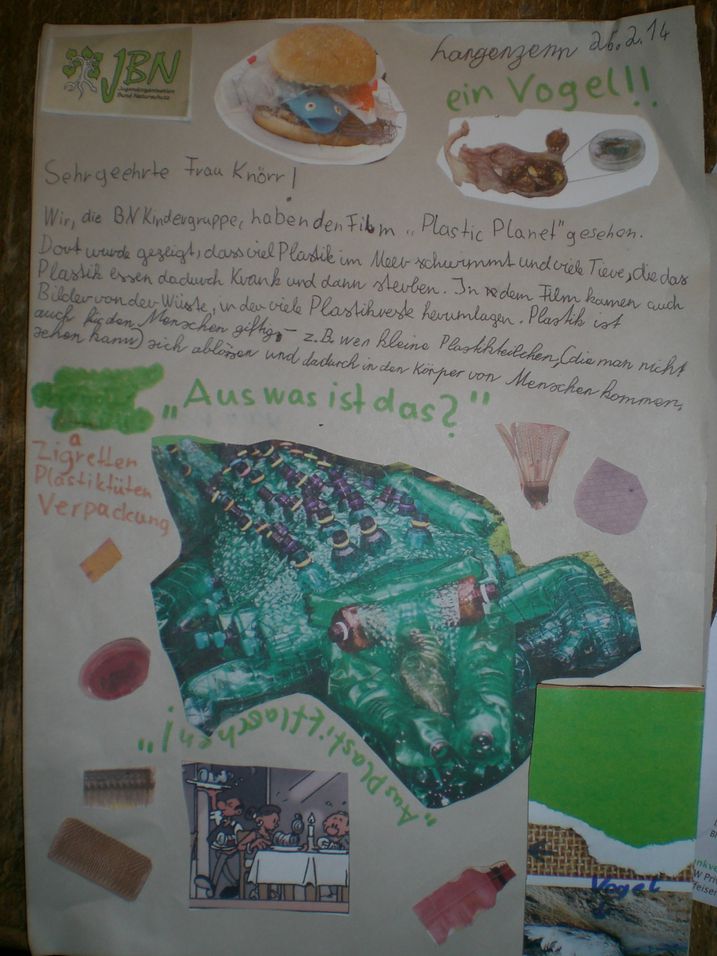 JBN
Jugendorganisation
Bund Naturschutz
Langenzenn 26.2.14
ein Vogel!!
Sehr geehrte Frau Knörr!
Wir, die BN Kindergruppe, haben den Film „Plastic Planet" gesehen.
Dort wurde gezeigt, dass viel Plastik im Meer schwimmt und viele Tiere, die das
Plastik essen dadurch krank und dann sterben. In dem Film kamen auch
Bilder von der Wüste, in der viele Plastikreste herumlagen. Plastik ist
auch für den Menschen giftig, – z.B. wen kleine Plastikteilchen, (die man nicht
sehen kann) sich ablössen und dadurch in den Körper von Menschen kommen.
„Aus was ist das?"
Zigaretten
Plastiktüten
Verpackung
„Aus Plastikflaschen!"
Vogel